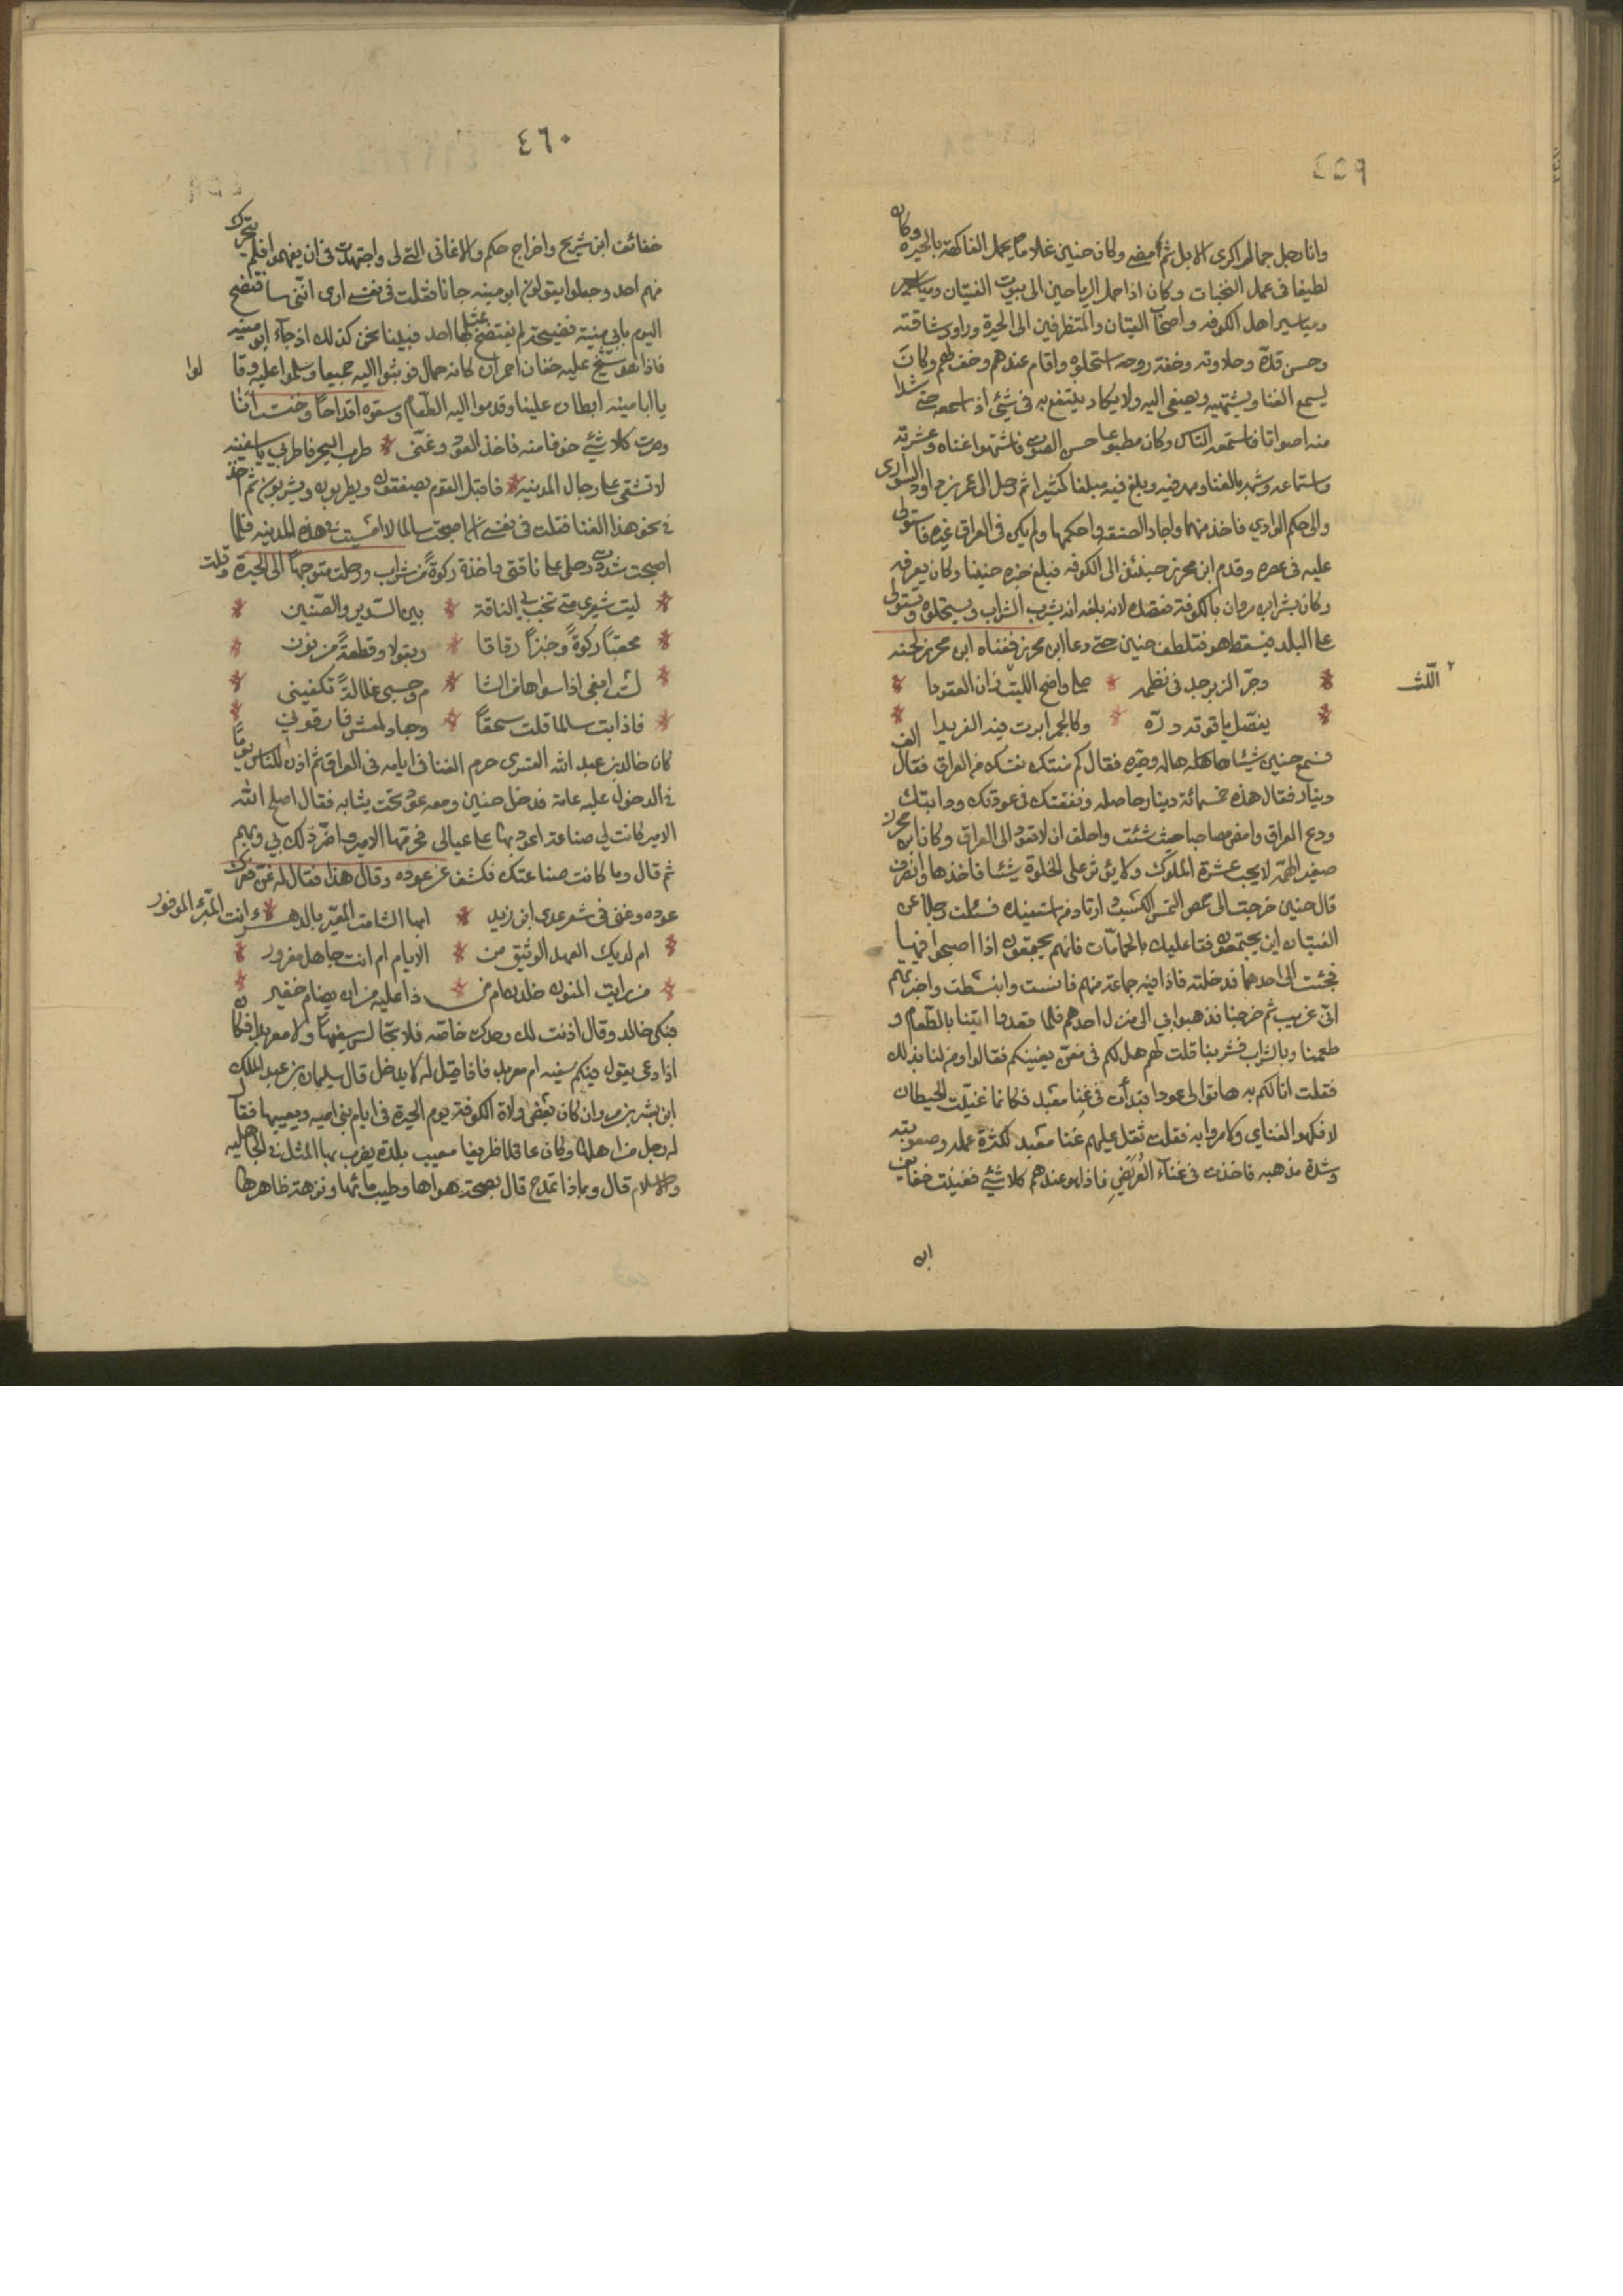 ٤٥٩
وانا رجل جمال اكرى الابل ثم امضى وكان حنين غلاما يحمل الفاكهة بالحيرة وكان
لطيفا فى عمل التحيات وكان اذا حمل الرياحين الى بيوت الفتيان ومياسير
ومياسير اهل الكوفه واصحاب القيان والمتظرفين الى الحيرة وراوا رشاقته
وحسن قده وحلاوته وخفة روحه استحلوه واقام عندهم وخف لهم وكان
يسمع الغنا ويشتهيه ويصغى اليه ولا يكاد ينتفع به فى شئ اذا سمعه حتى شدا
منه اصواتا فاستمعه الناس وكان مطبوعا حسن الصوت فاشتهوا غناه وعشرته
واستماعه وشهر بالغنا ومهر فيه وبلغ فيه مبلغا كثيرا ثم رحل الى عمر بن داود الوادى
والى حكم الوادي فاخذ منهما واجاد الصنعة واحكمها ولم يكن فى العراق غيره فاستولى
عليه فى عصره وقدم ابن محرز حينئذ الى الكوفه فبلغ خبره حنينا وكان يعرفه
وكان بشر ابن مروان بالكوفة فقصده لانه بلغه انه يشرب الشراب ويستحلوه ويستولى
على البلد فيسقط هو فتلطف حنين حتى دعا ابن محرز فغناه ابن محرز لحنه
وحر الزبرجد فى نظمه * على واضح الليت زان العقودا
٢ اللّث
يفصّل ياقوته درّه * وكالجمر ابرت فيه الفريدا
فسمع حنين شيئا هاله وحيره فقال كم منتك نفسك من العراق فقال الف
دينار فقال هذه خمسمائة دينار حاصله ونفقتك فى عودتك ودابتك
ودع العراق وامض مصاحبا حيث شئت واحلف ان لا تعود الى العراق وكان ابن محرز
صغير الهمّه لا يحب عشرة الملوك ولا يؤثر على الخلوة شيئا فاخذها وانصرف
قال حنين خرجت الى حمص التمس الكسب وارتاد من استفيده فسئلت رجلا عن
الفتيان اين يجتمعون فقا عليك بالحمامات فانهم يجتمعون اذا اصبحوا فيها
فجئت الى احدهما فدخلته فاذا فيه جماعة منهم فانست وانبسطت واخبرتهم
انى غريب ثم خرجنا فذهبوا بي الى منزل احدهم فلما قعدوا اتينا بالطعام و
طعمنا وبالشراب فشربنا قلت لهم هل لكم فى مغن يغنيكم فقالوا ومن لنا بذلك
فقلت انا لكم به هاتوا الى عودا فبدأت فى غنا معبد فكانما غنيت الحيطان
لا فكهوا لغناي ولا سروا به فقلت ثقل عليهم غنا معبد لكثرة عمله وصعوبته
وشدة مذهبه فاخذت فى غناء الغريض فاذا هو عندهم كلا شئ فغنيت خفايف
ابن
٤٦٠
خفائف ابن شريح واخراج حكم والاغانى التى لى واجتهدت فى ان يفهموا فلم يتحرك
منهم احد وجعلوا يقولون ابو منبه جانا فقلت فى نفسى ارى اننى سافتضح
اليوم بابي منبه فضيحة لم يفتضح بمثلها احد فبينا نحن كذلك اذ جاء ابو منبه
فاذا هو شيخ عليه خفان احمران كانه جمال فوثبوا اليه جميعا وسلموا عليه وقا لوا
يا ابا منبه ابطات علينا وقدموا اليه الطعام وسقوه اقداحا وخنست انا
وصرت كلا شئ خوفا منه فاخذ العود وغنى * طرب البحر فاطربي يا سفينه
لا تشقى على رجال المدينه * فاقبل القوم يصفقون ويطربون ويشربون ثم اخذ
فى نحو هذا الغنا فقلت فى نفسى ان اصبحت سالما لا امسيت فى هذه المدينه فلما
اصبحت شددت رحلى على ناقتى واخذت ركوة من شراب ورحلت متوجها الى الحيرة وقلت
* ليت شعرى متى تخب بي الناقة * بين السدير والصنين *
* محقبا ركوة وخبزا رقاقا * وبقولا وقطعة من نون *
* لست ابغى اذا سواها من الشا * م وحسبى علالة تكفينى *
* فاذا ابت سالما قلت سحقا * وبعاد لمعشر فارقونى *
كان خالد بن عبد الله القسرى حرم الغنا فى ايامه فى العراق ثم اذن للناس يوما
فى الدخول عليه عامة فدخل حنين ومعه عود تحت يثابه فقال اصلح الله
الامير كانت لي صناعة اعود بها على عيالى فحرمها الامير فاضر ذلك بي وبهم
ثم قال وما كانت صناعتك فكشف عن عوده وقال هذا فقال له غن فحرك
عوده وغنى فى شعر عدى ابن زيد * ايها الشامت المعير بالدهـ * ـر أانت المبرّئ الموفور
* ام لديك العهد الوثيق من * الايام ام انت جاهل مغرور *
* من رايت المنون خلدن ام من * ذا عليه من ان يضام خفير *
فبكى خالد وقال اذنت لك وحدك خاصّه فلا تجالس سفيها ولا معربدا فكان
اذا دعى يقول فيكم سفيه ام معربد فاذا قيل له لا يدخل قال سليمان بن عبد الملك
ابن بشر بن مروان كان بعض ولاة الكوفة يوم الحيرة فى ايام بنى اميه ويعيبها فقال
له رجل من اهلها وكان عاقلا ظريفا معيب بلدة يضرب بها المثل فى الجاهليه
والاسلام قال وبماذا تمدح قال بصحة هواها وطيب مائها ونزهة ظاهرها